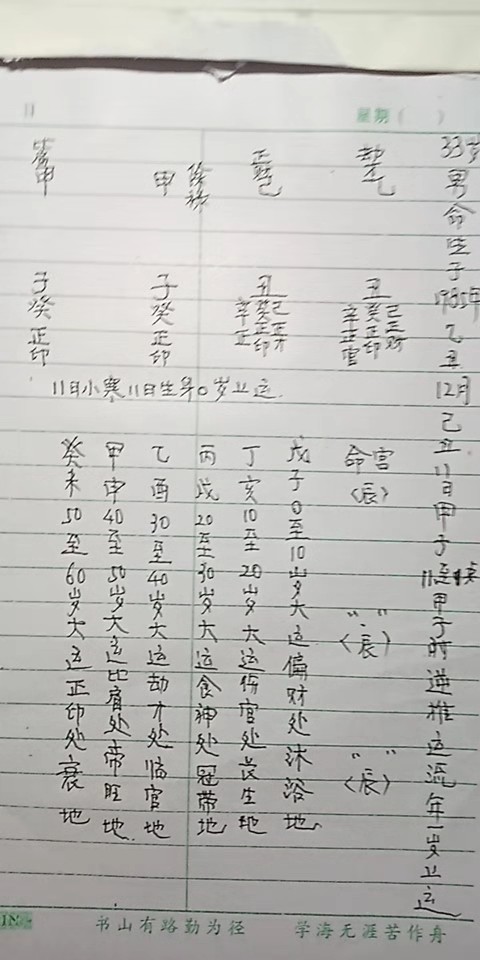 11
星期（　）
33岁男命生于1985年乙丑12月己丑11日甲子11点甲子时逆推运流年一岁上运
劫乙
正财己
甲
比肩甲
丑
己正财
癸正印
辛正官
丑
己正才
癸正印
辛正
子癸正印
子癸正印
11日小寒11日生算0岁上运.
命宫〈辰〉
〃〈辰〉
〃〈辰〉
戊子0至10岁大运偏财处沐浴地
丁亥10至20岁大运伤官处长生地
丙戌20至30岁大运食神处冠带地
乙酉30至40岁大运劫才处临官地
甲申40至50岁大运比肩处帝旺地
癸未50至60岁大运正印处衰地
书山有路勤为径
学海无涯苦作舟